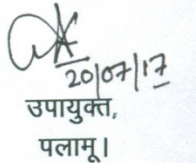 20/07/17
उपायुक्त,
पलामू।